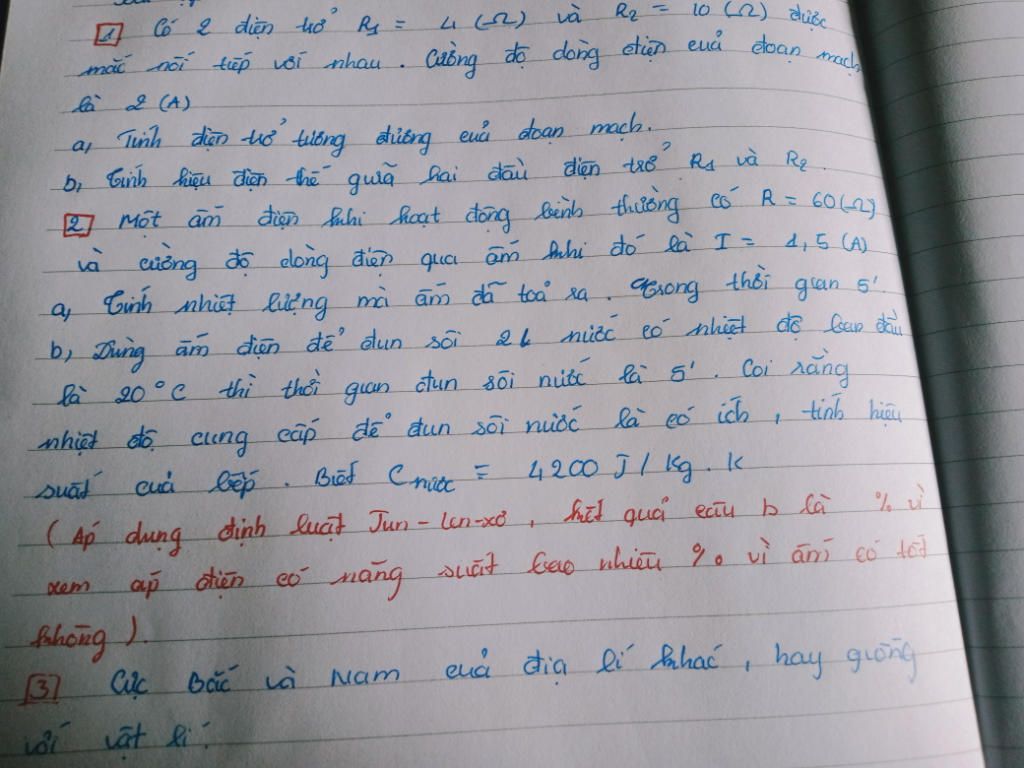 1 Có 2 điện trở R1 = 4 (Ω) và R2 = 10 (Ω) được
mắc nối tiếp với nhau. Cường độ dòng điện của đoạn mạch
là 2 (A)
a, Tính điện trở tương đương của đoạn mạch.
b, Tính hiệu điện thế giữa hai đầu điện trở R1 và R2.
2 Một ấm điện khi hoạt động bình thường có R = 60 (Ω)
và cường độ dòng điện qua ấm khi đó là I = 1,5 (A)
a, Tính nhiệt lượng mà ấm đã toả ra. Trong thời gian 5'.
b, Dùng ấm điện để đun sôi 2L nước có nhiệt độ ban đầu
là 20°C thì thời gian đun sôi nước là 5'. Coi rằng
nhiệt độ cung cấp để đun sôi nước là có ích, tính hiệu
suất của bếp. Biết Cnước = 4200 J/Kg.K
(Áp dụng định luật Jun-Len-xơ, kết quả câu b là % vì
xem ấp điện có năng suất bao nhiêu % vì ấm có tốt
không).
3 Cực Bắc và Nam của địa lí khác, hay giống
với vật lí.